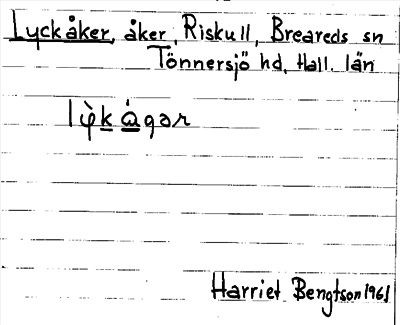 Lyckåker, åker, Riskull, Breareds sn
Tönnersjö hd, Hall. län
lỳk ágər
Harriet Bengtson 1961